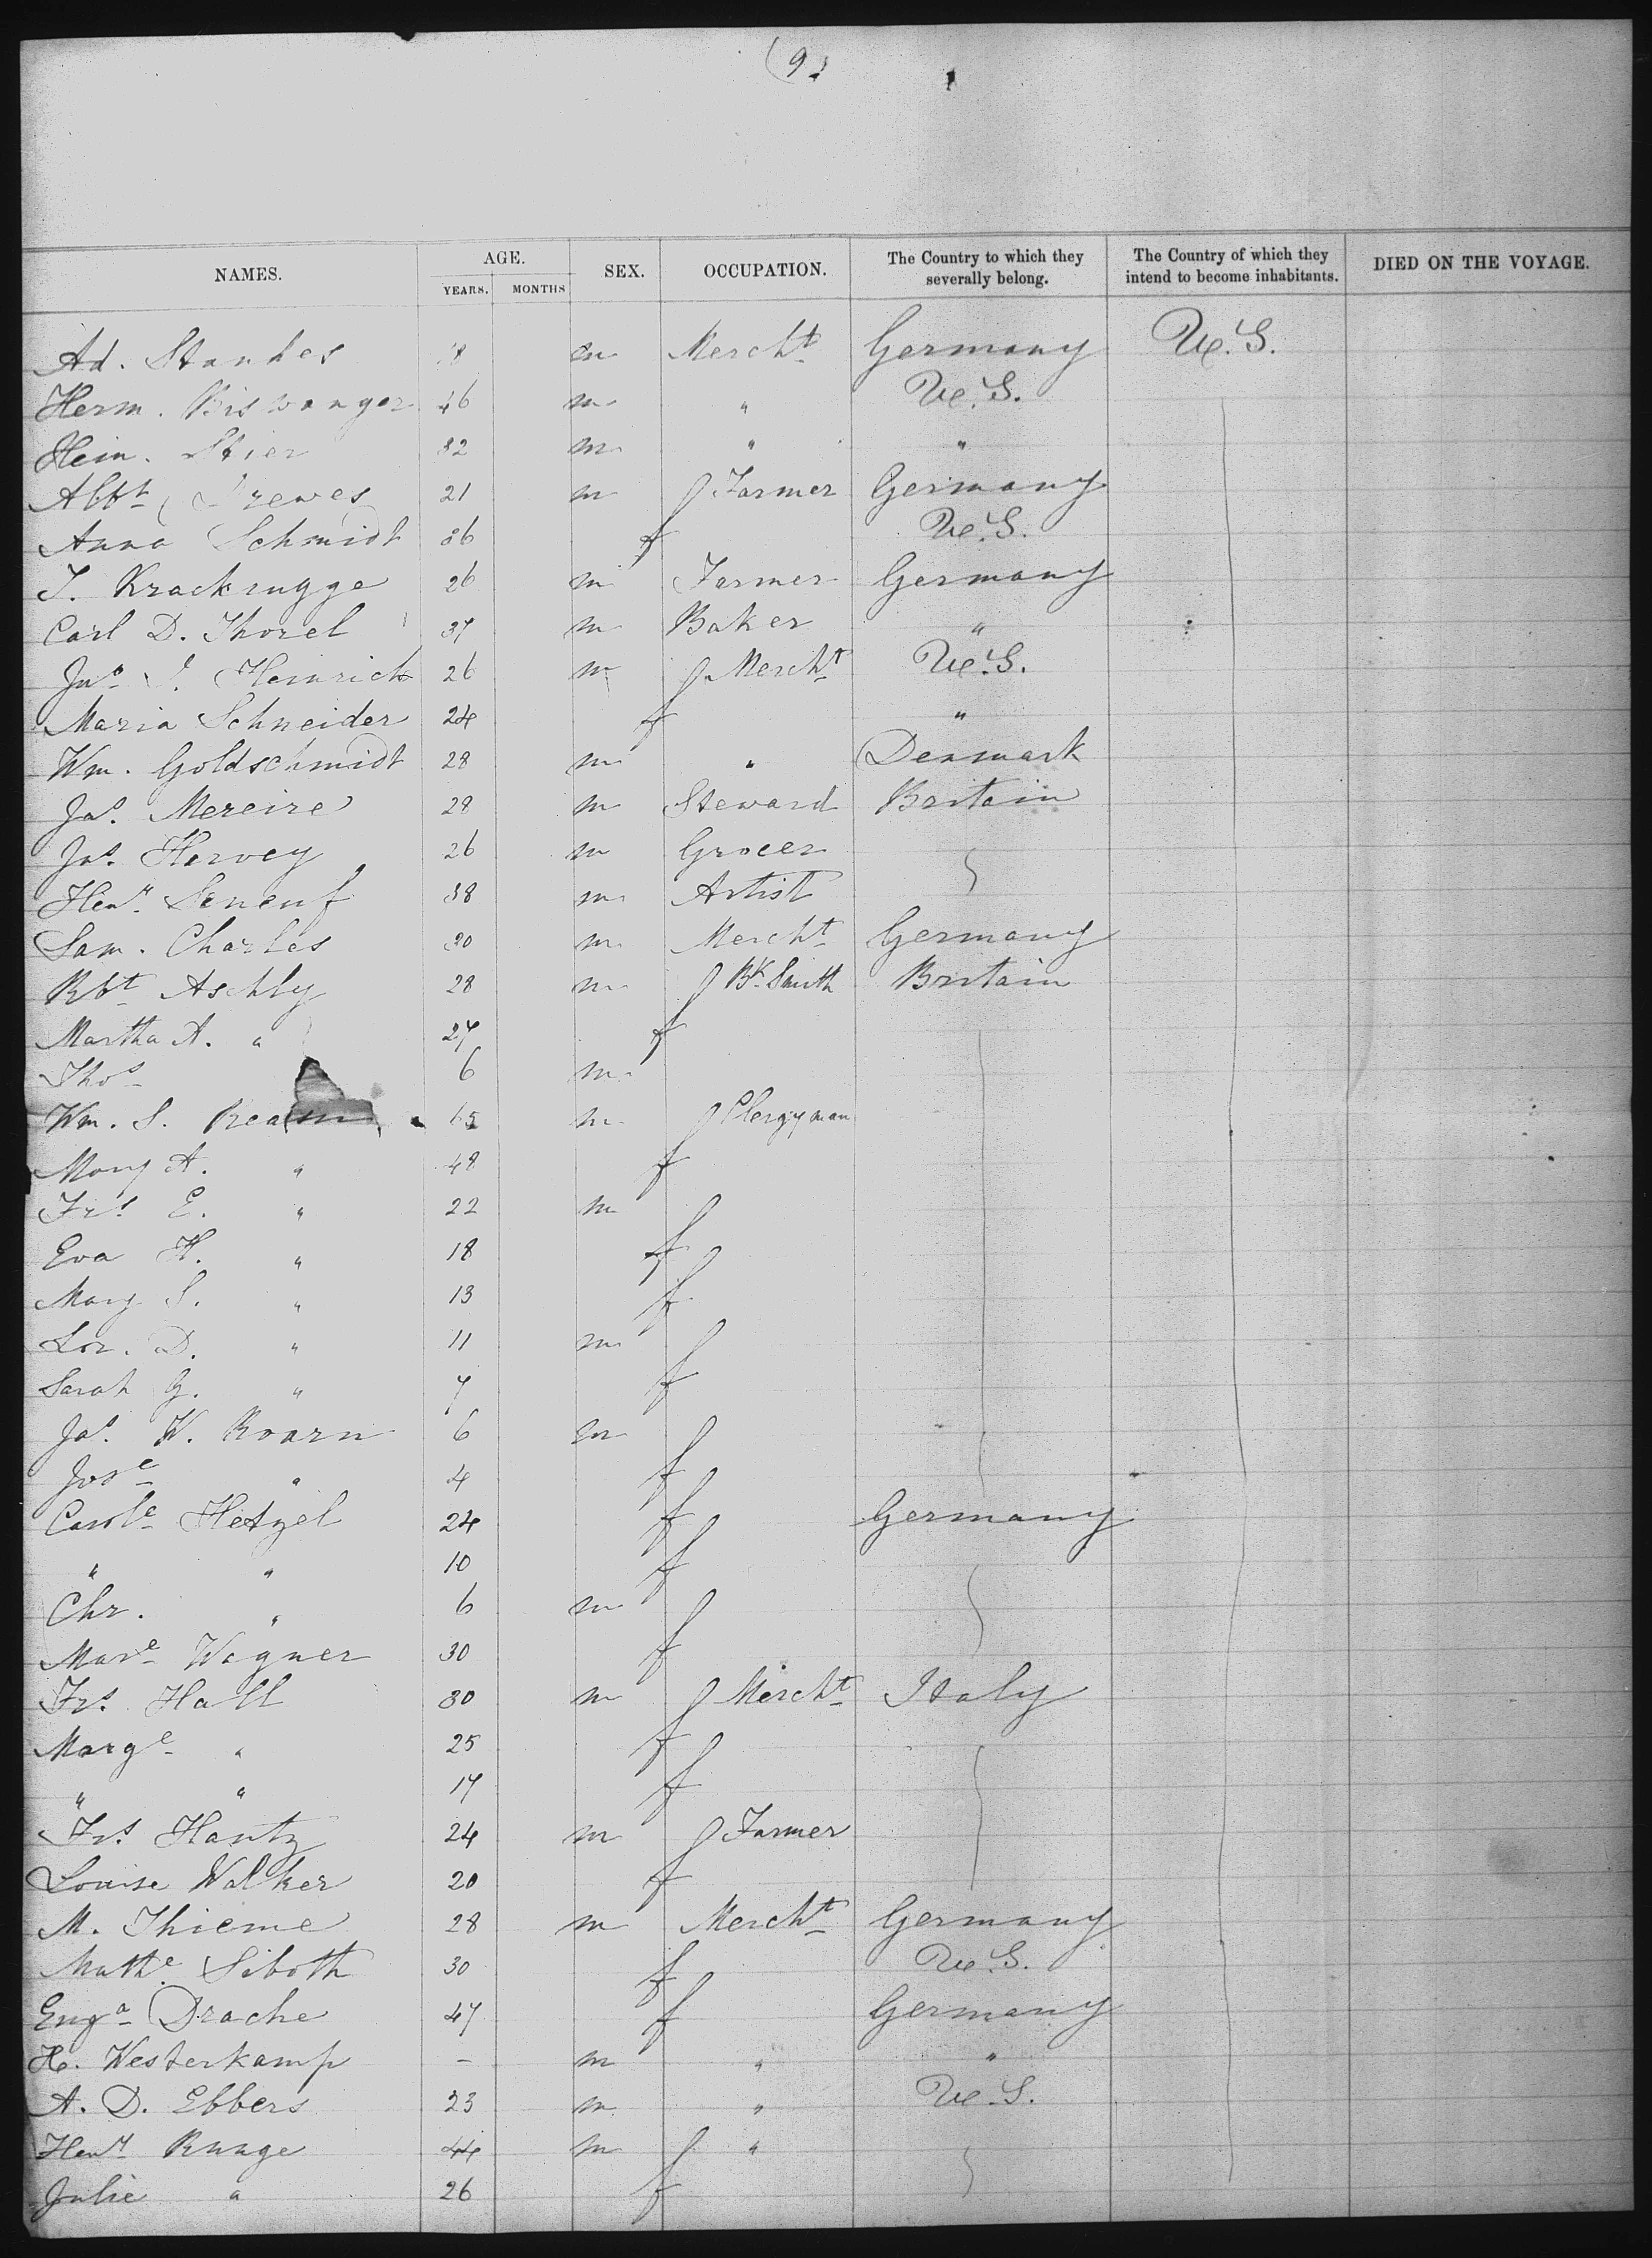 (9.)
NAMES. AGE. YEARS. MONTHS SEX. OCCUPATION. The Country to which they severally belong. The Country of which they intend to become inhabitants. DIED ON THE VOYAGE.
Ad. m Mercht Germany U.S.
Herm. Biswanger 46 m " U.S.
Hein. Stier 32 m " "
Albt Drewes 21 m Farmer Germany
Anna Schmidt 36 f U.S.
J. Krackrugge 26 m Farmer Germany
Carl D. Thorel 37 m Baker "
Jno J. Heinrich 26 m Mercht U.S.
Maria Schneider 24 f "
Wm. Goldschmidt 28 m " Denmark
Jas. Mereire 28 m Steward Britain
Jas. Hervey 26 m Grocer
Heny Seneuf 38 m Artist
Sam. Charles 30 m Mercht Germany
Rbt Aschly 28 m Bk Smith Britain
Martha A. " 27 f
Thos 6 m
Wm. S. 65 m Clergyman
Mary A. " 48 f
Frs E. " 22 m
Eva H. " 18 f
Mary S. " 13 f
Lor. D. " 11 m
Sarah G. " 7 f
Jas. W. Roarn 6 m
Jose " 4 f
Carole Hetzel 24 f Germany
" " 10 f
Chr. " 6 m
Mare Wagner 30 f
Frs. Hall 30 m Mercht Italy
Marge " 25 f
" " 17 f
Frs Hantz 24 m Farmer
Louise Walker 20 f
M. Thieme 28 m Mercht Germany
Mathe Siboth 30 f U.S.
Enga Drache 47 f Germany
H. Westerkamp – m " "
A. D. Ebbers 23 m " U.S.
Heny Runge 44 m "
Julie " 26 f